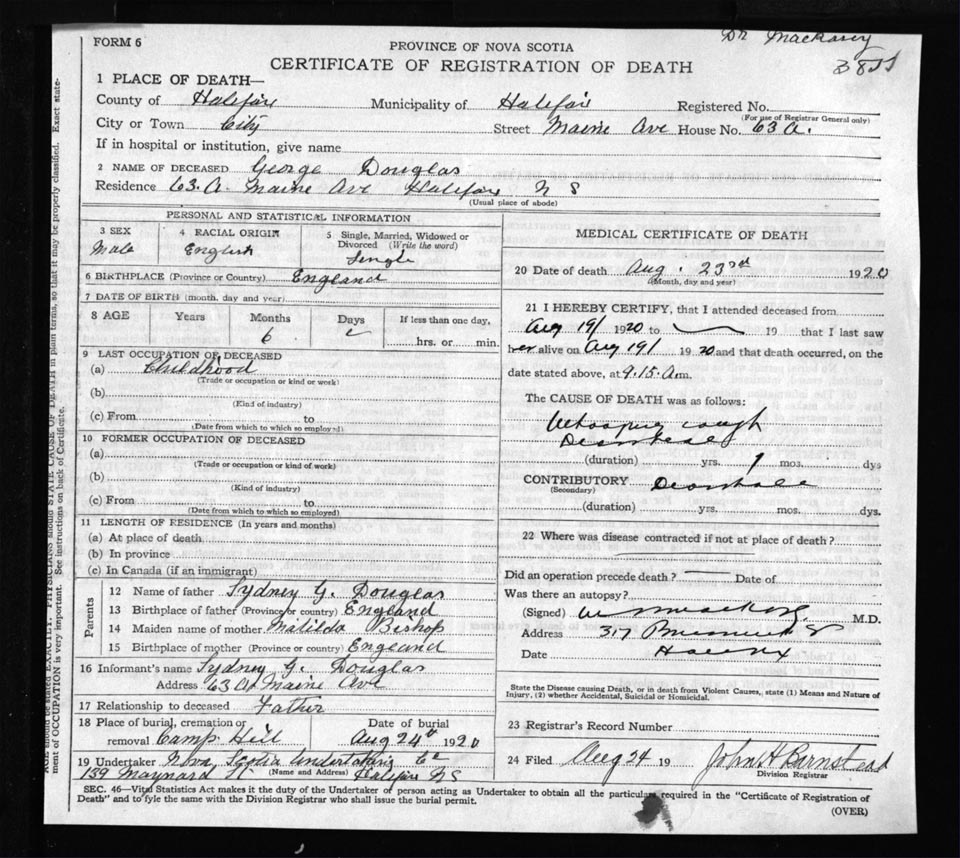 FORM 6
Dr Mackasey
PROVINCE OF NOVA SCOTIA
CERTIFICATE OF REGISTRATION OF DEATH
1 PLACE OF DEATH—
County of Halifax Municipality of Halifax Registered No.
(For use of Registrar General only)
City or Town City Street Maine Ave House No. 63 A.
If in hospital or institution, give name
2 NAME OF DECEASED George Douglas
Residence 63. A. Maine Ave Halifax N S
(Usual place of abode)
PERSONAL AND STATISTICAL INFORMATION
3 SEX
Male
4 RACIAL ORIGIN
English
5 Single, Married, Widowed or Divorced (Write the word)
Single
6 BIRTHPLACE (Province or Country) England
7 DATE OF BIRTH (month, day and year)
8 AGE Years Months Days If less than one day,
6 hrs. or min.
9 LAST OCCUPATION OF DECEASED
(a) Childhood
(Trade or occupation or kind or work)
(b)
(Kind of industry)
(c) From to
(Date from which to which so employed)
10 FORMER OCCUPATION OF DECEASED
(a)
(Trade or occupation or kind of work)
(b)
(Kind of industry)
(c) From to
(Date from which to which so employed)
11 LENGTH OF RESIDENCE (In years and months)
(a) At place of death
(b) In province
(c) In Canada (if an immigrant)
Parents
12 Name of father Sydney G. Douglas
13 Birthplace of father (Province or country) England
14 Maiden name of mother Matilda Bishop
15 Birthplace of mother (Province or country) England
16 Informant's name Sydney G. Douglas
Address 63 A Maine Ave
17 Relationship to deceased Father
18 Place of burial, cremation or removal Camp Hill
Date of burial
Aug 24th 1920
19 Undertaker Nova Scotia Undertaking Co
139 Maynard St (Name and Address) Halifax NS
MEDICAL CERTIFICATE OF DEATH
20 Date of death Aug. 23rd 1920
(Month, day and year)
21 I HEREBY CERTIFY, that I attended deceased from
Aug 19/ 1920 to 19 that I last saw
her alive on Aug 19/ 1920 and that death occurred, on the
date stated above, at 9.15. A.m.
The CAUSE OF DEATH was as follows:
Whooping cough
Diarrhoea
(duration) yrs. 1 mos. dys
CONTRIBUTORY Diarrhoea
(Secondary)
(duration) yrs. mos. dys.
22 Where was disease contracted if not at place of death?
Did an operation precede death? — Date of
Was there an autopsy?
(Signed) M.D.
Address 317 Brunswick St
Date Halifax
State the Disease causing Death, or in death from Violent Causes, state (1) Means and Nature of
Injury, (2) whether Accidental, Suicidal or Homicidal.
23 Registrar's Record Number
24 Filed Aug 24 19 John H Barnstead
Division Registrar
SEC. 46—Vital Statistics Act makes it the duty of the Undertaker or person acting as Undertaker to obtain all the particulars required in the "Certificate of Registration of
Death" and to fyle the same with the Division Registrar who shall issue the burial permit.
(OVER)